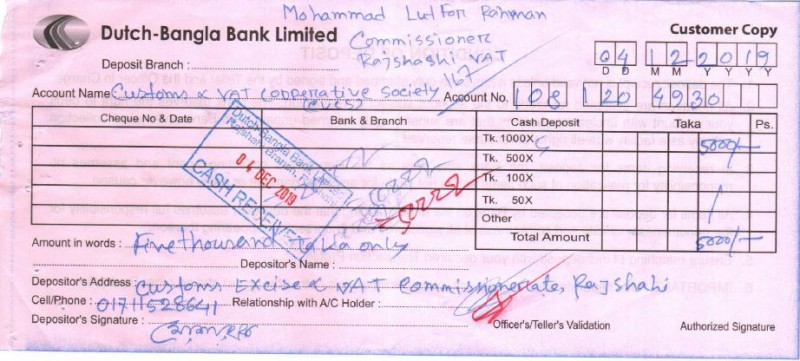 Mohammad Lutfor Rahman
Dutch-Bangla Bank Limited
Commissioner
Customer Copy
Rajshahi VAT
167
04 12 2019
D D M M Y Y Y Y
Deposit Branch :
Account Name Customs & VAT Cooperative Society
(CVCS)
Account No. 108 120 4930
Cheque No & Date Bank & Branch Cash Deposit Taka Ps.
Tk. 1000X 5 5000/-
Tk. 500X
Tk. 100X
Tk. 50X
Other
Total Amount 5000/-
Dutch-Bangla Bank Limited
Rajshahi Branch, Rajshahi
04 DEC 2019
CASH RECEIVED
Amount in words : Five thousand taka only
Depositor's Name :
Depositor's Address : Customs Excise & VAT Commissionerate, Rajshahi
Cell/Phone : 01711528641 Relationship with A/C Holder :
Depositor's Signature :
Officer's/Teller's Validation Authorized Signature